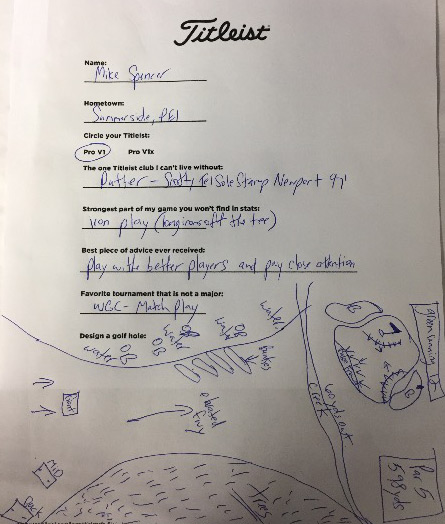 Titleist
Name:
Mike Spencer
Hometown:
Summerside, PEI
Circle your Titleist:
Pro V1 Pro V1x
The one Titleist club I can't live without:
Putter - Scotty Tel Sole Stamp Newport
Strongest part of my game you won't find in stats:
iron play (long irons off the tee)
Best piece of advice ever received:
play with better players and pay close attention
Favorite tournament that is not a major:
WGC - Match Play
Design a golf hole:
water OB
OB
water OB
water OB
water
bunkers
elevated
fwy
creek
Trees
Par 5
598 yds
B
B